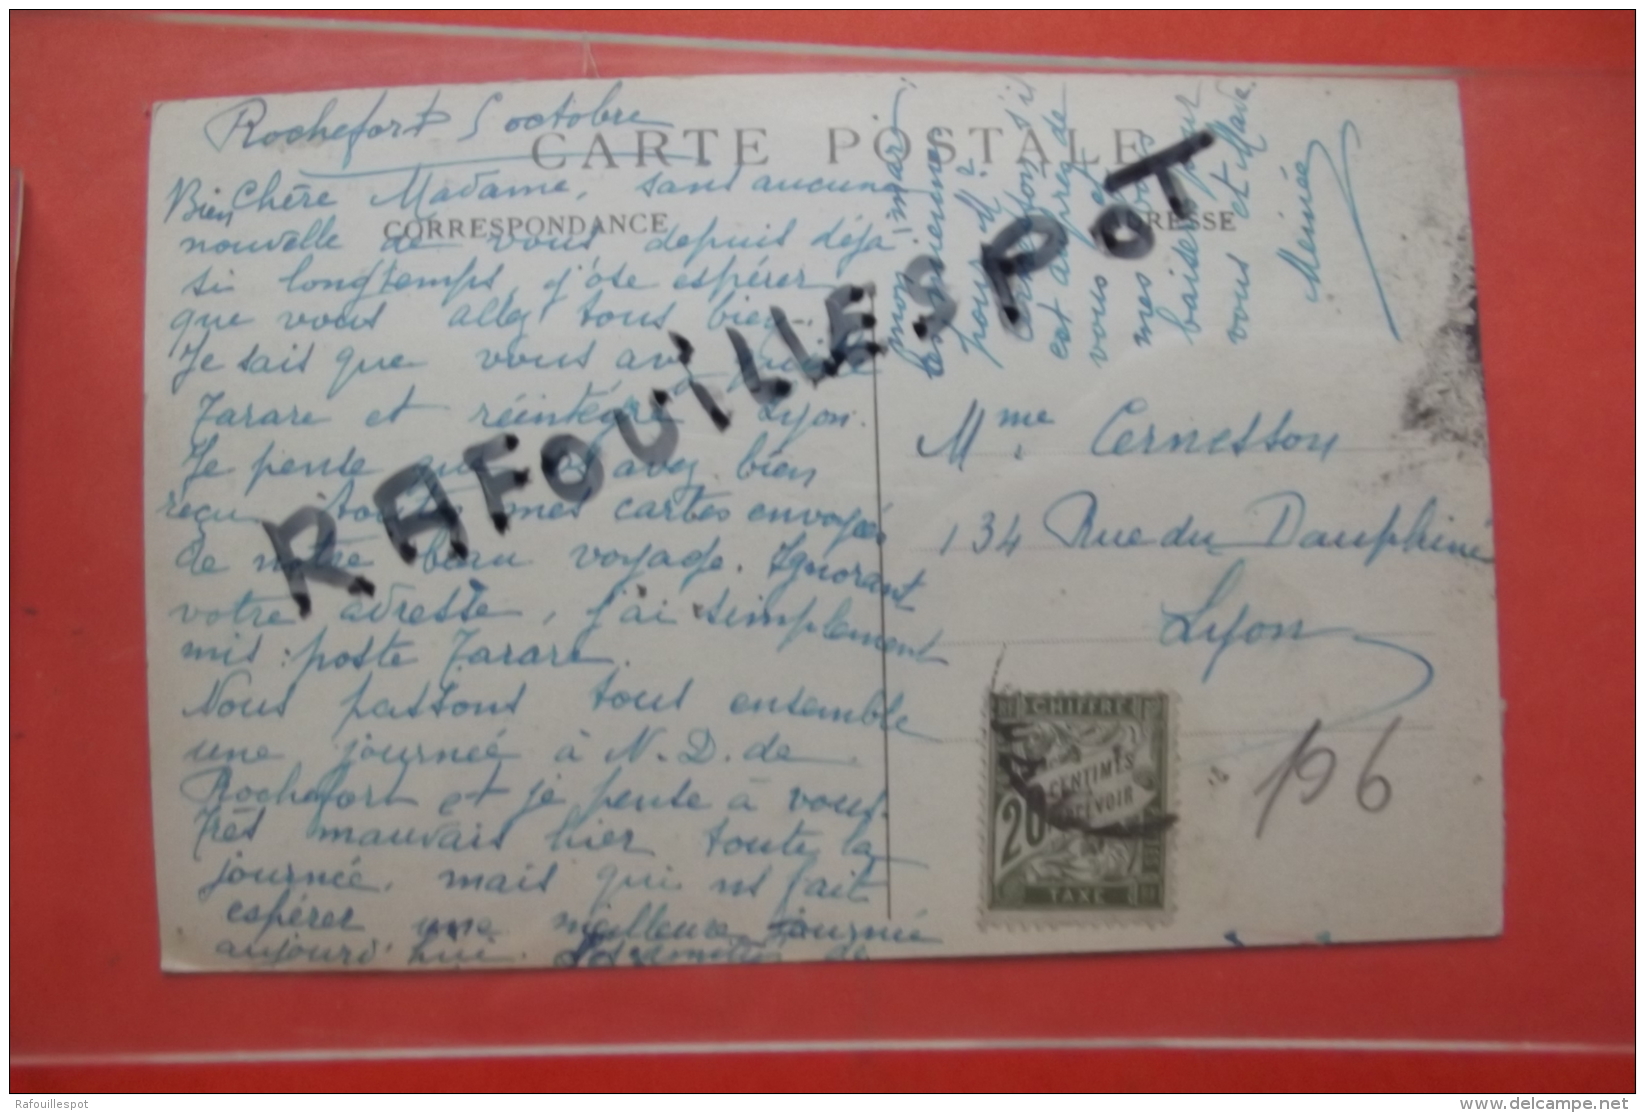 Rochefort 5 octobre
CARTE POSTALE
CORRESPONDANCE
Bien Chère Madame, sans aucune
nouvelle de vous depuis déjà
si longtemps, j'ose espérer
que vous allez tous bien.
Je sais que vous avez quitté
Tarare et réintégré Lyon.
Je pense que vs avez bien
reçu toutes mes cartes envoyées
de notre beau voyage. Ignorant
votre adresse, j'ai simplement
mis : poste Tarare.
Nous passons tous ensemble
une journée à N. D. de
Rochefort et je pense à vous.
Très mauvais hier toute la
journée, mais qui ns fait
espérer une meilleure journée
aujourd'hui. de
mon mari
pour M?
est auprès de
vous et
mes bons
baisers pour
vous et
Meinée
Mme Cernesson
134 Rue du Dauphiné
Lyon
CHIFFRE
20 CENTIMES
TAXE
196
RAFOUILLESPOT
Rafouillespot
delcampe.net